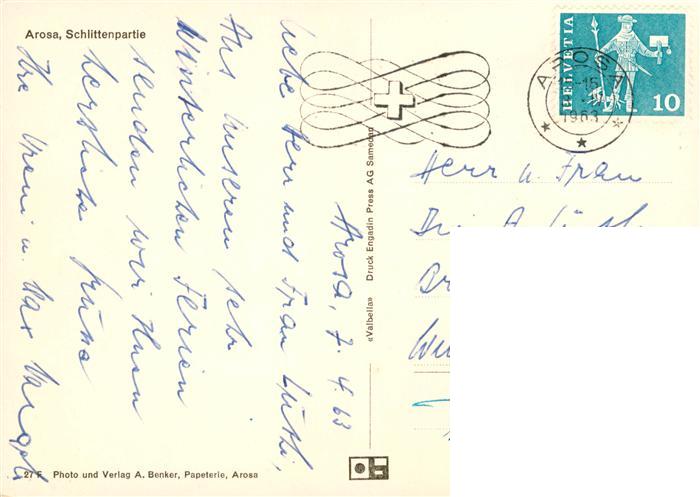 Arosa, Schlittenpartie
Arosa, 7. 4. 63
Liebe Herr und Frau Lüthi,
Aus unseren sehr
Winterlichen Ferien
senden wir Ihnen
herzliche Grüsse
Ihre Vreni u. Max
HELVETIA
10
AROSA
-15
1963
Herr u. Frau
«Valbella» Druck Engadin Press AG Samedan
27 F Photo und Verlag A. Benker, Papeterie, Arosa